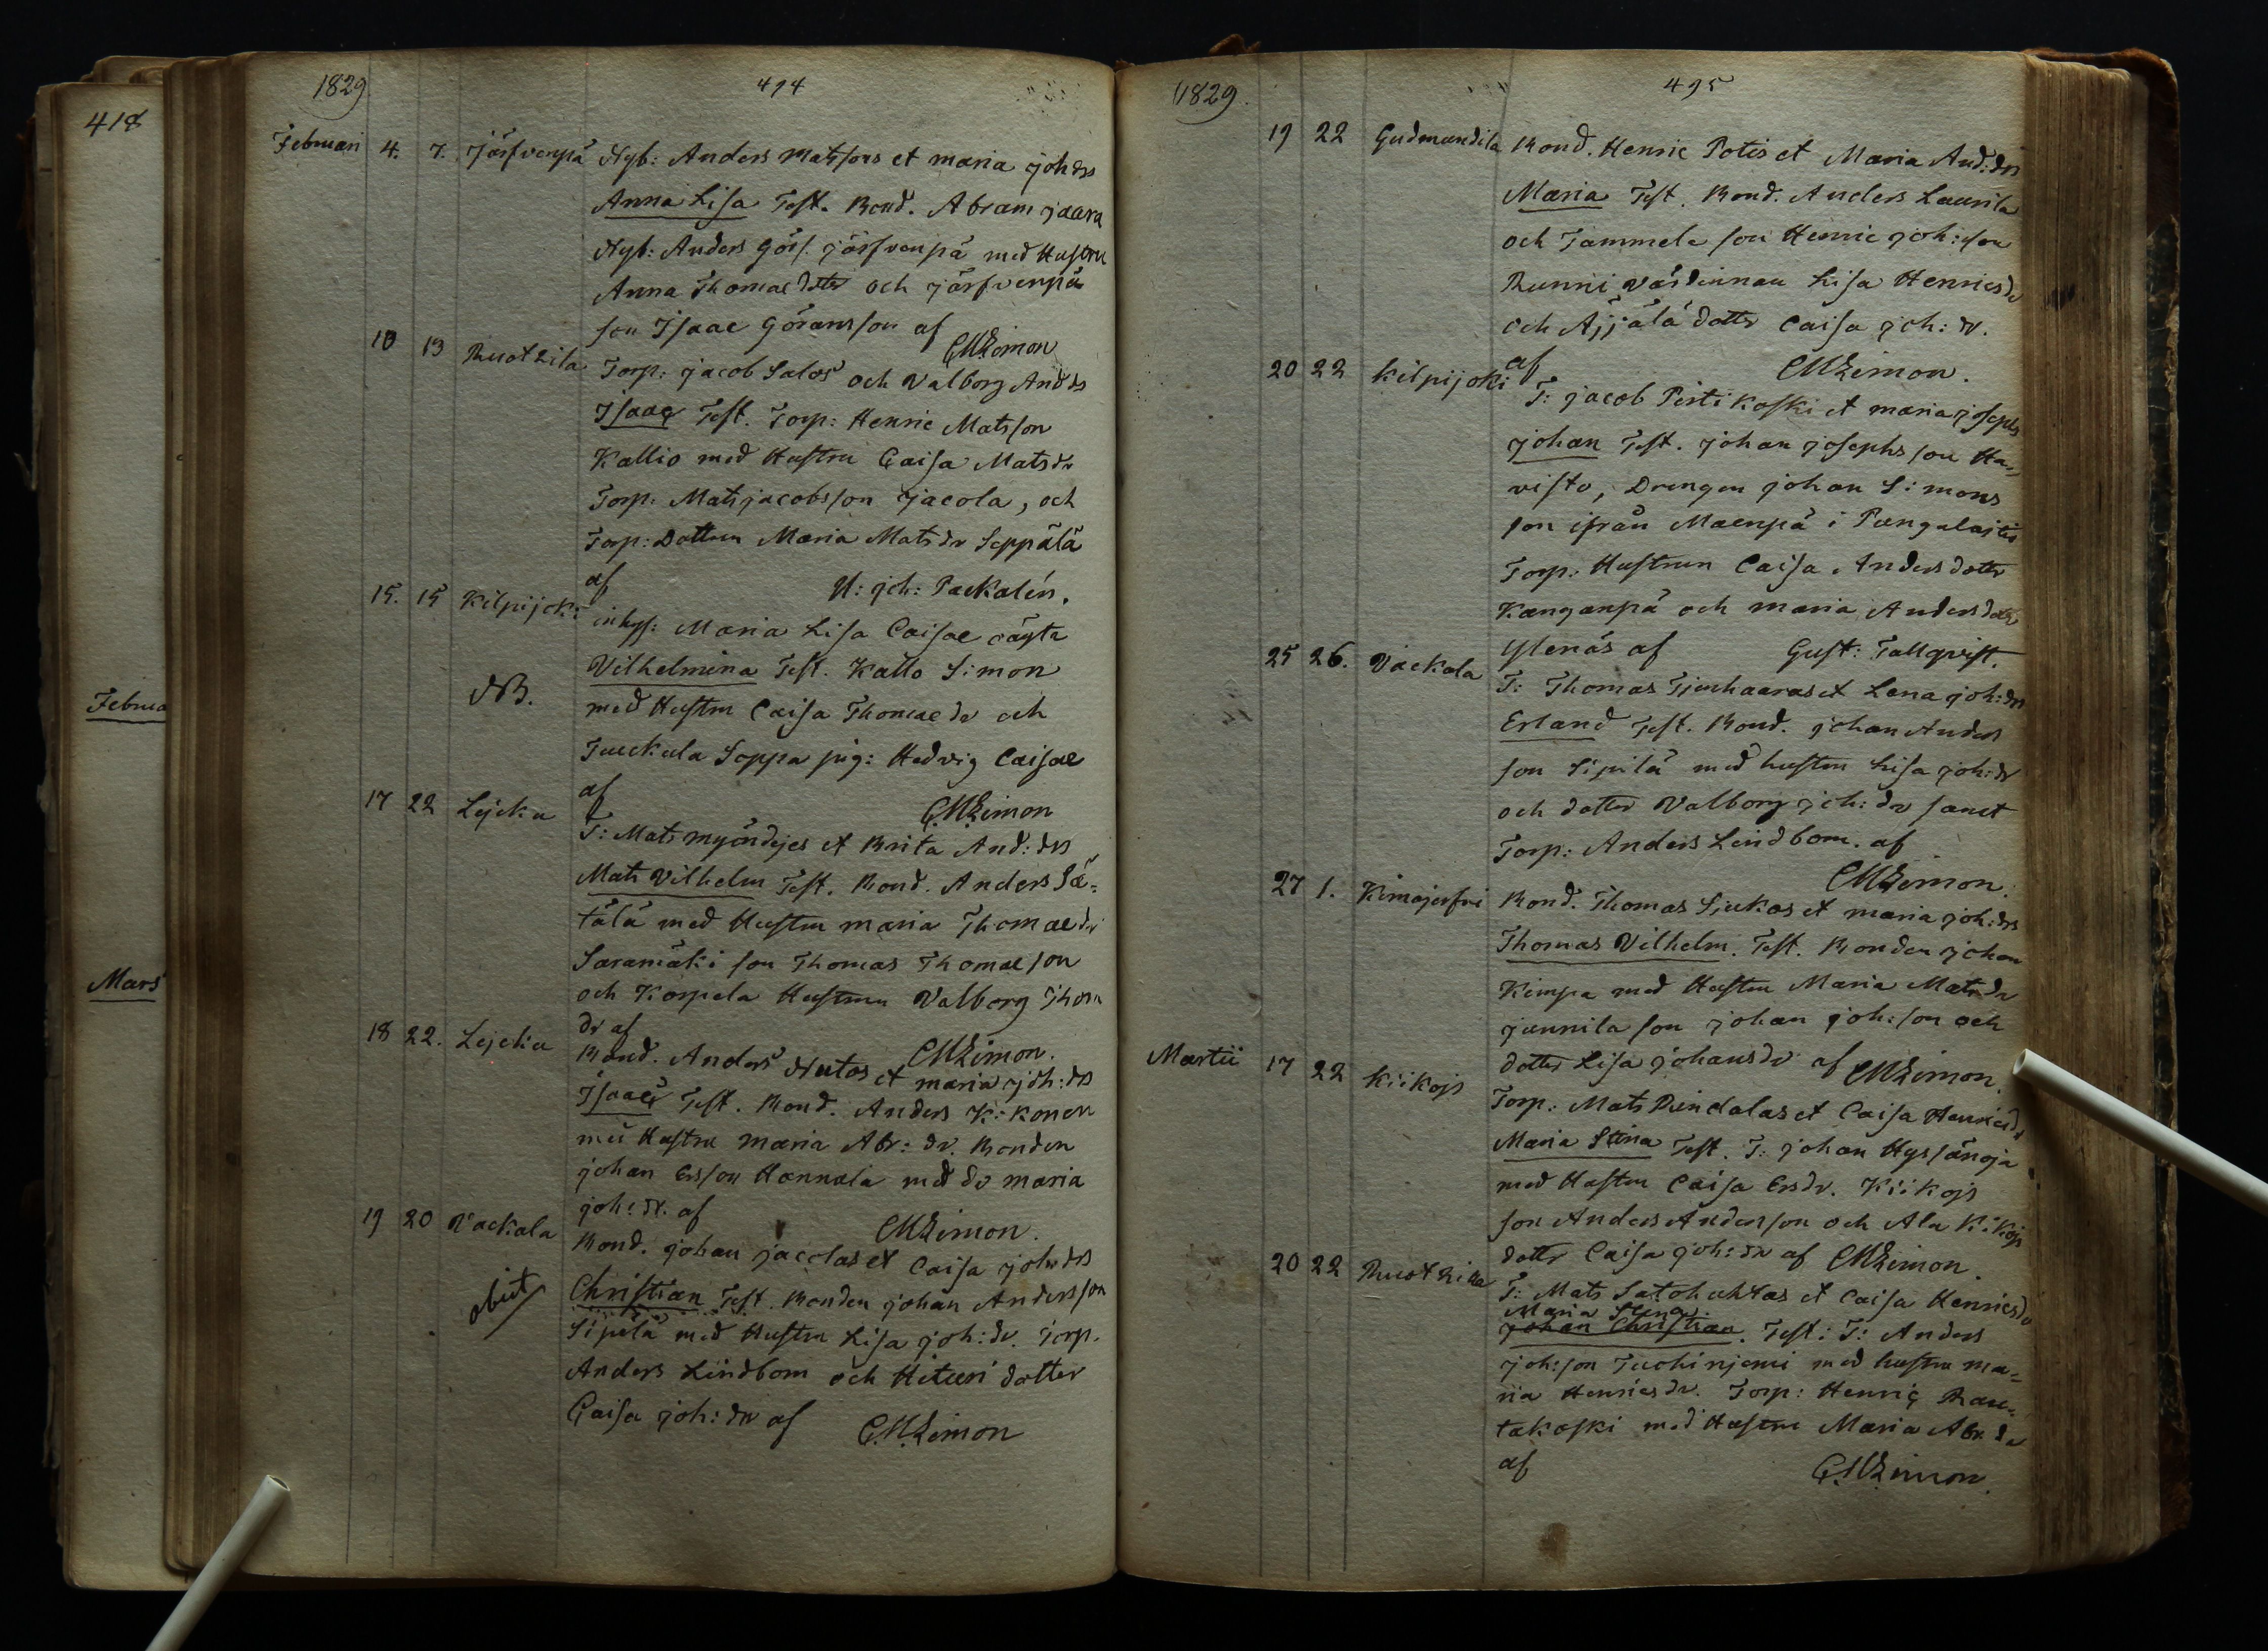 418
Februa
Mars
1829
494
Februari 4. 7. Järfvenpä Nyb: Anders Matssons et Maria joh drs
Anna Lisa Test. Bond. Abram jaara
Nyb: Anders Görs. järfvenpä med Hustru
Anna Thomae dotter och järfvenpä
son Isaac Göransson af CMZimon
10 13 Ruotzila Torp: jacob Salos och Valborg And ds
Isaac Test. Torp: Henric Matsson
Kallio med Hustru Caisa Matsdr
Torp: Mats jacobsson jacola, och
Torp: Dottren Maria Mats dr Seppälä
af N: joh: Packalén.
15. 15 Kilpijoki inhys: Maria Lisa Caisae oägta
Vilhelmina Test. Kallo Simon
NB. med Hustru Caisa Thomae dr och
Tueckula Soppa pig: Hedvig Caisae
af CMZimon
17 22 Lejcku T: Mats myöndyes et Brita And: drs
Mats Vilhelm Test. Bond. Anders Sä=
tälä med Hustru maria Thomae dr
Saramäki son Thomas Thomae son
och Korpela Hustrun Valborg Thom
dr af CMZimon.
18 22. Lejcku Bond. Anders Nutos et maria joh: drs
Isaac Test. Bond. Anders Kikonen
med Hustru Maria Abr: dr. Bonden
johan Ersson Hannula med dr maria
joh: dr. af CMZimon.
19 20 Vackala Bond. johan jacolas et Caisa joh drs
obiit Christian Test. Bonden johan Andersson
Sipilä med Hustru Lisa joh: dr. Torp.
Anders Lindbom och Hituri dotter
Caisa joh: dr af CMZimon
1829.
495
19 22 Gudmundila Bond. Henric Potis et Maria And: drs
Maria Test. Bond. Anders Laurila
och Tammela son Henric joh: son
Runni värdinnan Lisa Henricsdr
och Äjjälä dotter Caisa joh: dr.
af CMZimon.
20 22 Kilpijoki T: jacob Pertikoski et maria josephs
johan Test. johan josephsson Ha=
visto, Drengen johan Simons
son ifrån Maenpä i Pungalaitis
Torp: Hustrun Caisa Andersdotter
Kanganpä och maria Andersdotter
Ylenäs af Gust: Tallqvist.
25 26. Vackala T: Thomas Tjenhaaras et Lena joh: drs
Erland Test. Bond. johan Anders
son Sipilä med hustru Lisa joh: dr
och dotter Valborg joh: dr samt
Torp: Anders Lindbom. af
CMZimon.
27 1. Kimajerfvi Bond. Thomas Sjukos et maria joh: drs
Thomas Vilhelm. Test. Bonden johan
Kimpa med Hustru Maria Matsdr
junnila son johan joh: son och
dotter Lisa johansdr af CMZimon.
Martii 17 22 Kiikojs Torp: Mats Rindalas et Caisa Henricsdr
Maria Stina Test. T: johan Hyssänoja
med Hustru Caisa Ersdr. Kiikojs
son Anders Andersson och Ala Kikojs
dotter Caisa joh: dr af CMZimon.
20 22 Ruotzila T: Mats Satohuhtas et Caisa Henricsdr
Maria Stina.
johan Christian. Test: T: Anders
joh: son Tuohinjemi med hustru Ma=
ria Henricsdr. Torp: Henric Rau=
takoski med Hustru Maria Abr. dr
af CMZimon.